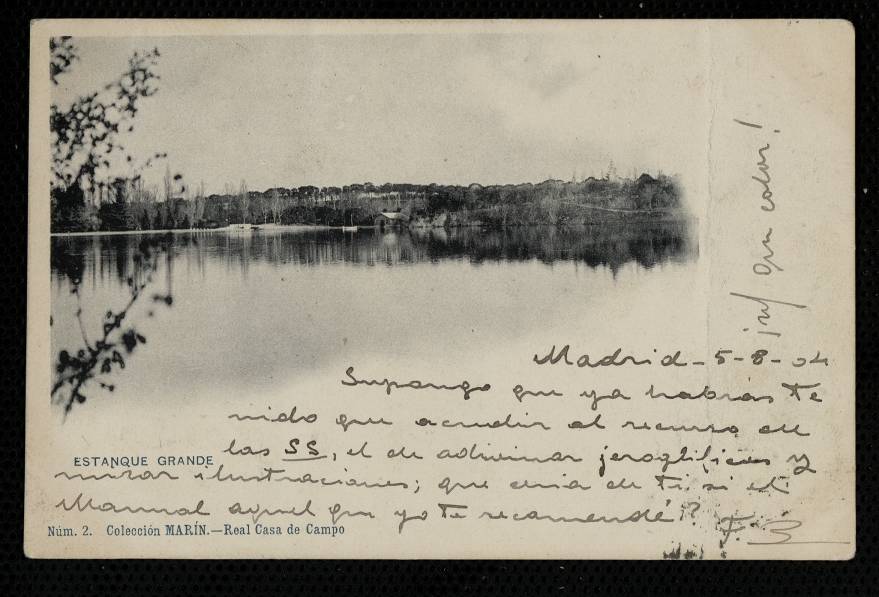 ¡uf que calor!
Madrid - 5-8-04
Supongo que ya habrás te
nido que acudir al recurso de
las SS, el de adivinar jeroglificos y
ESTANQUE GRANDE
mirar ilustraciones; que seria de ti si el
Manual aquel que yo te recomendé?
F. B
Núm. 2. Colección MARÍN.—Real Casa de Campo